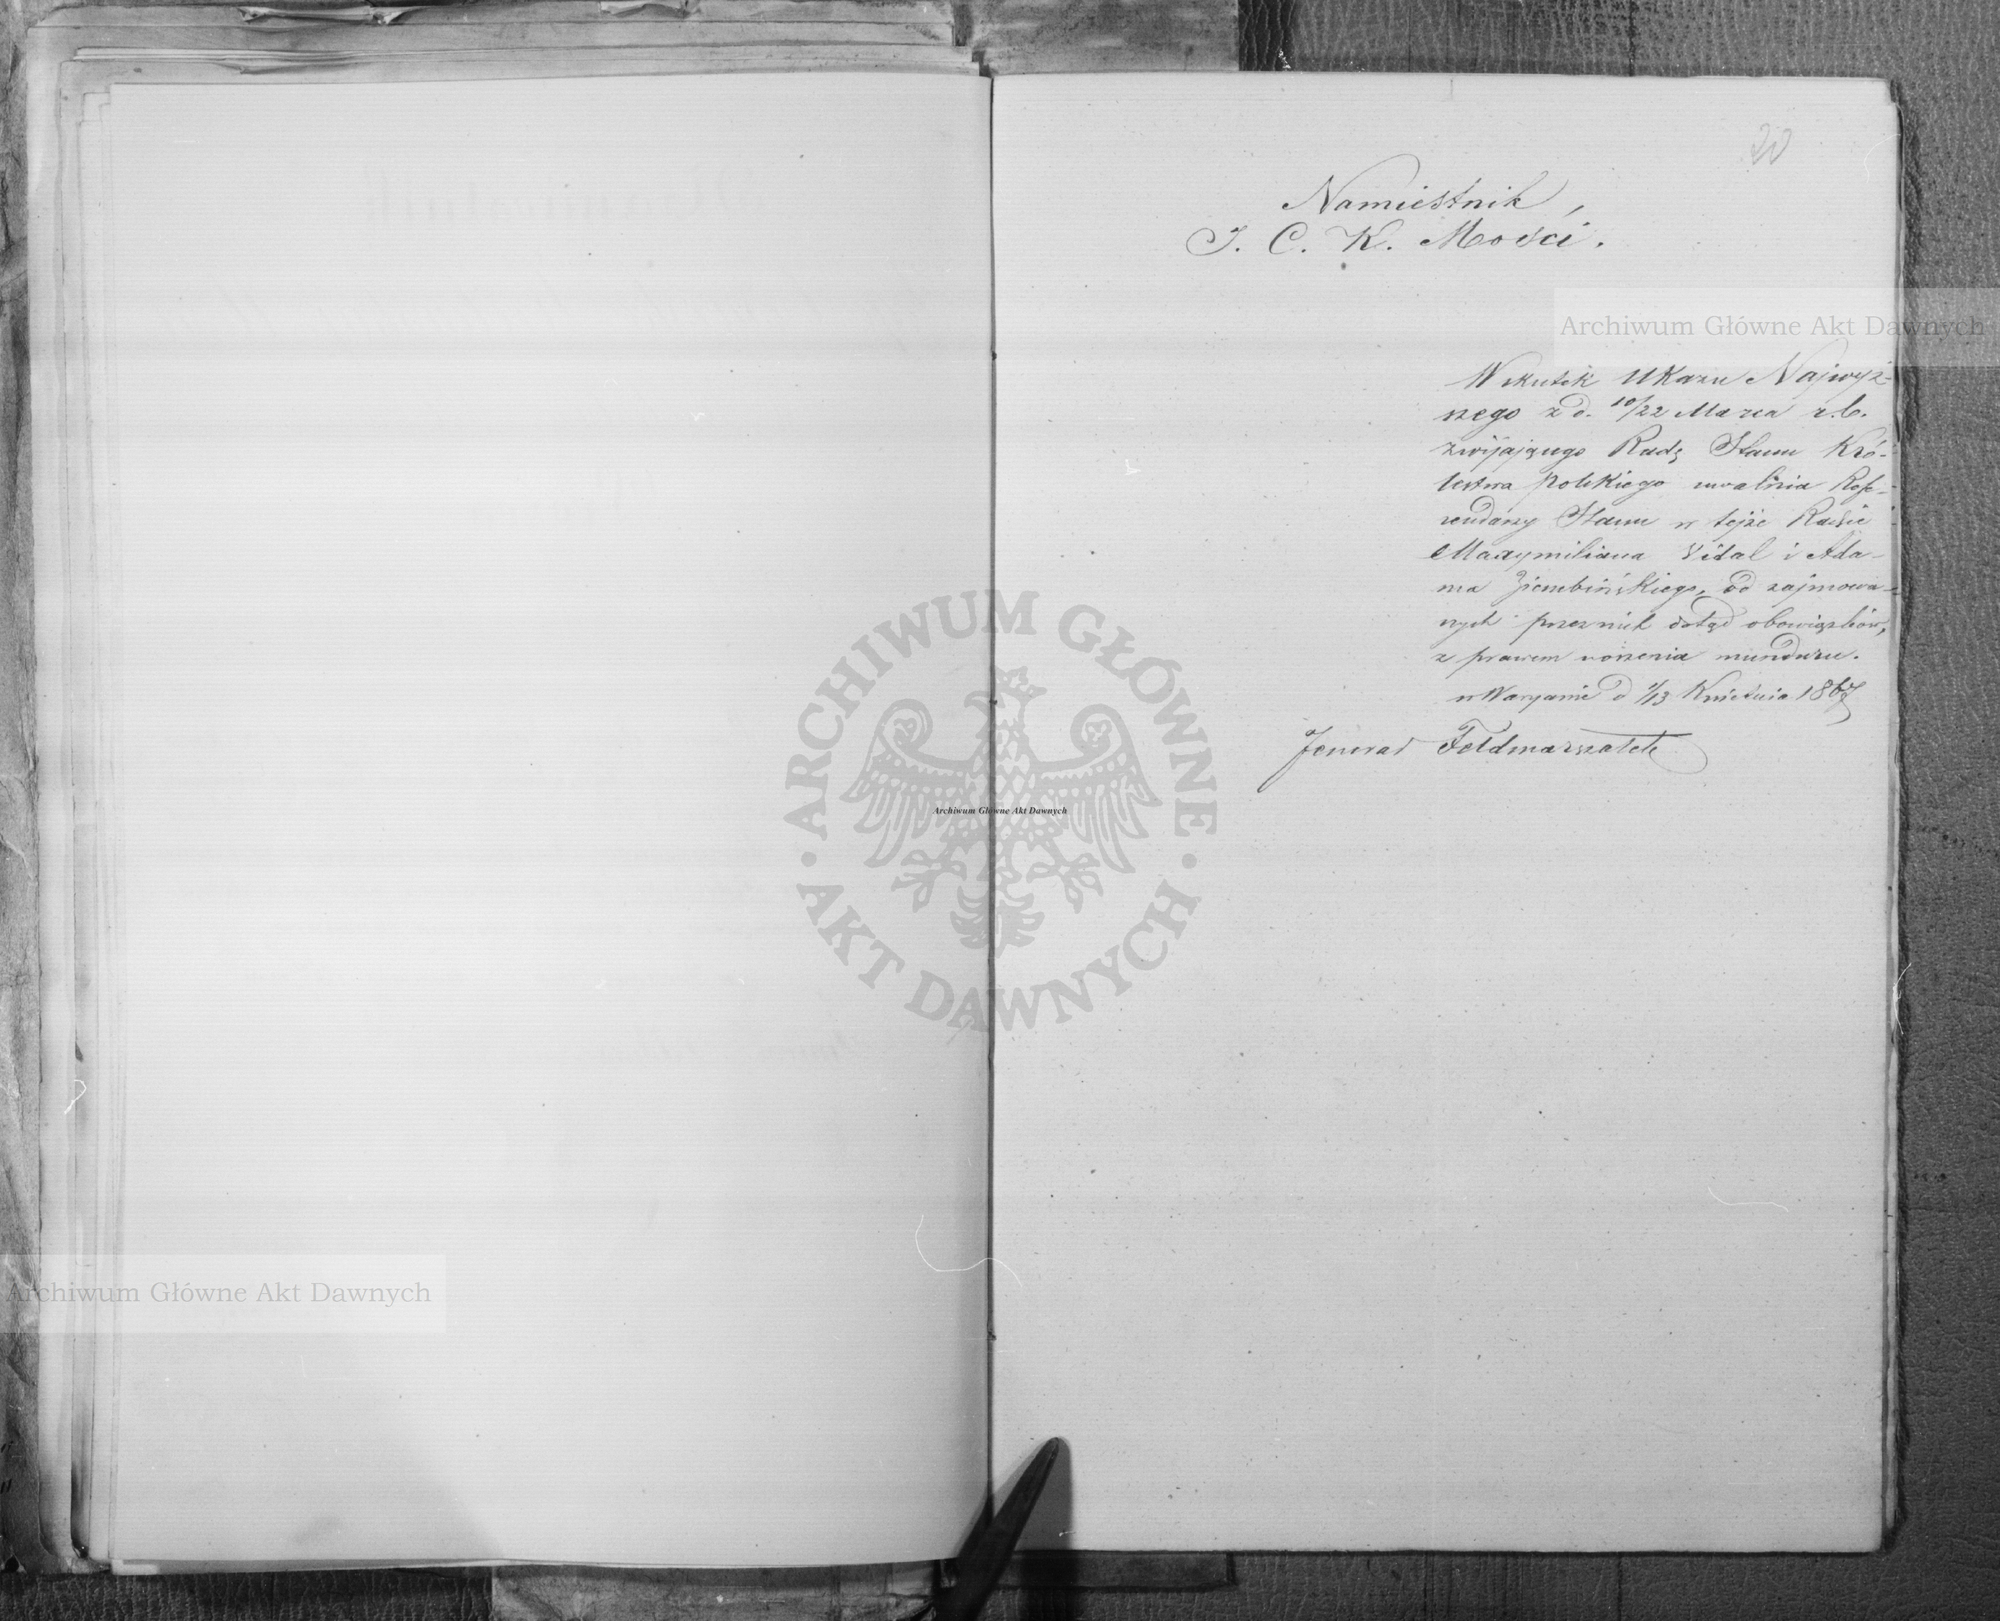 20
Namiestnik
J. C. K. Mości.
Wskutek Ukazu Najwyż-
szego z d. 10/22 Marca r.b.
zwijającego Radę Stanu Kró-
lestwa Polskiego uwalnia Refe-
rendarzy Stanu w tejże Radzie
Maxymiliana Vidal i Ada-
ma Ziembińskiego, od zajmowa-
nych przez nich dotąd obowiązków,
z prawem noszenia munduru.
w Warszawie d 1/13 Kwietnia 1867
Jenerał Feldmarszałek
Archiwum Główne Akt Dawnych
ARCHIWUM GŁÓWNE
· AKT DAWNYCH ·
Archiwum Główne Akt Dawnych
Archiwum Główne Akt Dawnych